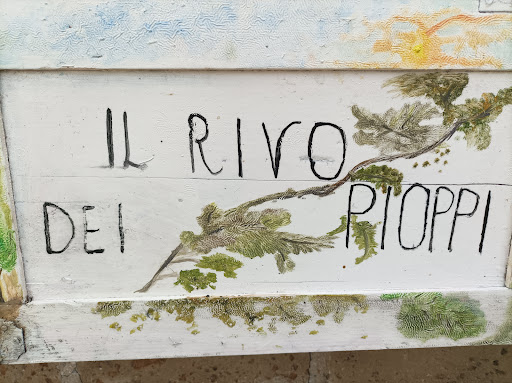 IL RIVO
DEI PIOPPI